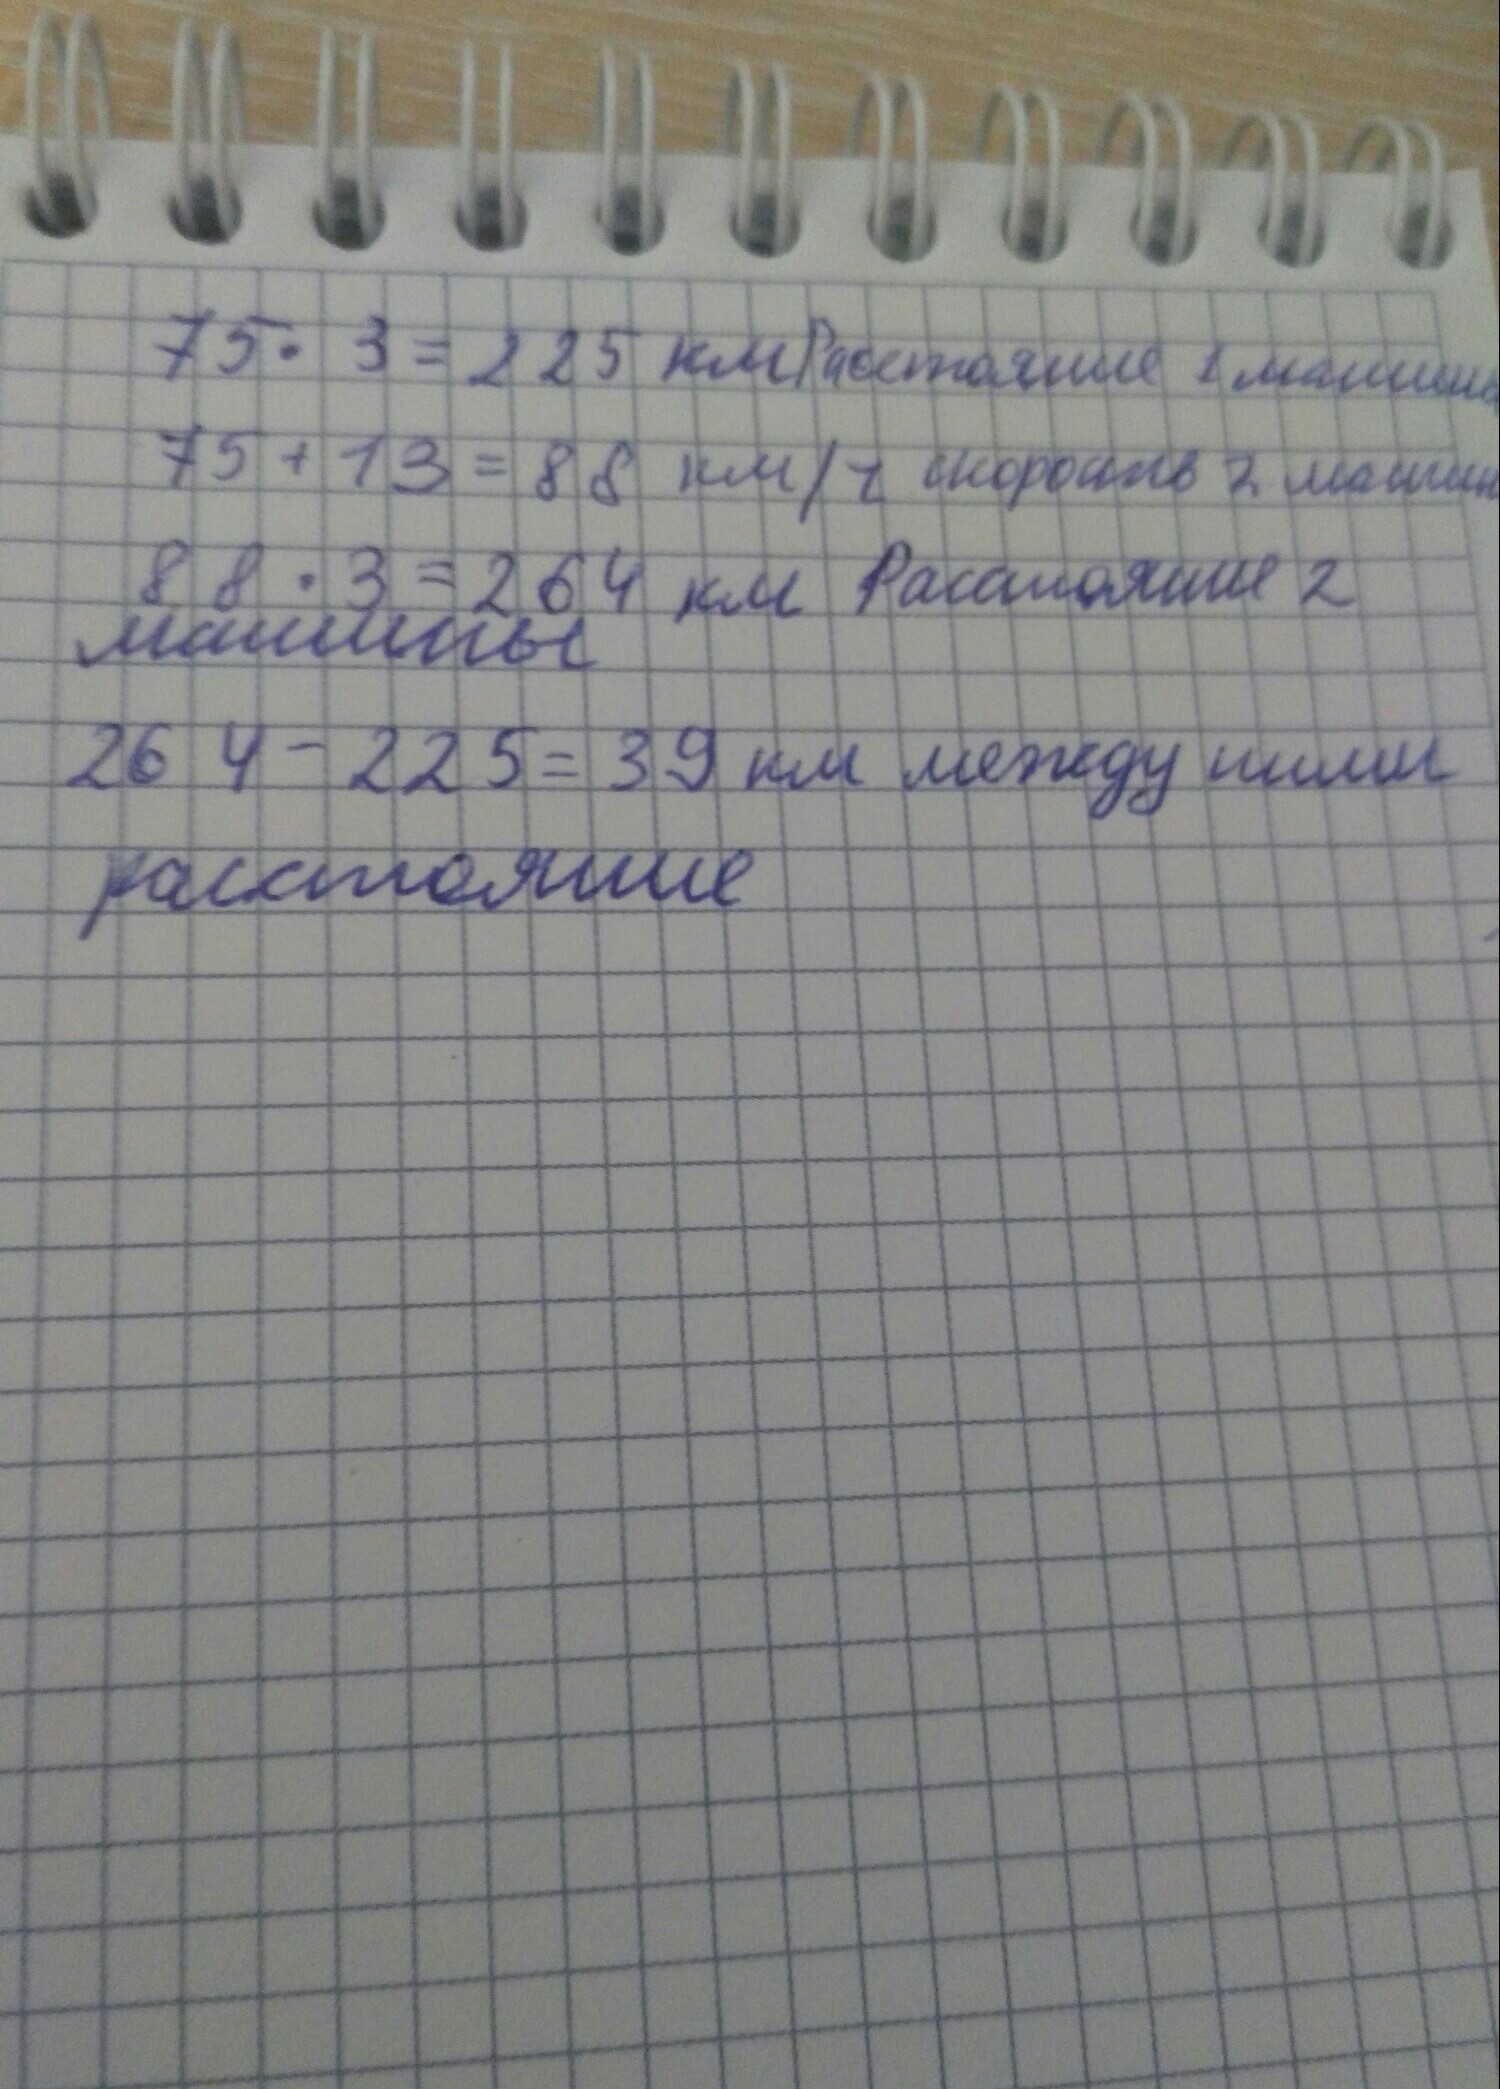 75 · 3 = 225 км Расстояние 1 машины
75 + 13 = 88 км/ч скорость 2 машин
88 · 3 = 264 км Расстояние 2
машины
264 - 225 = 39 км между ними
расстояние